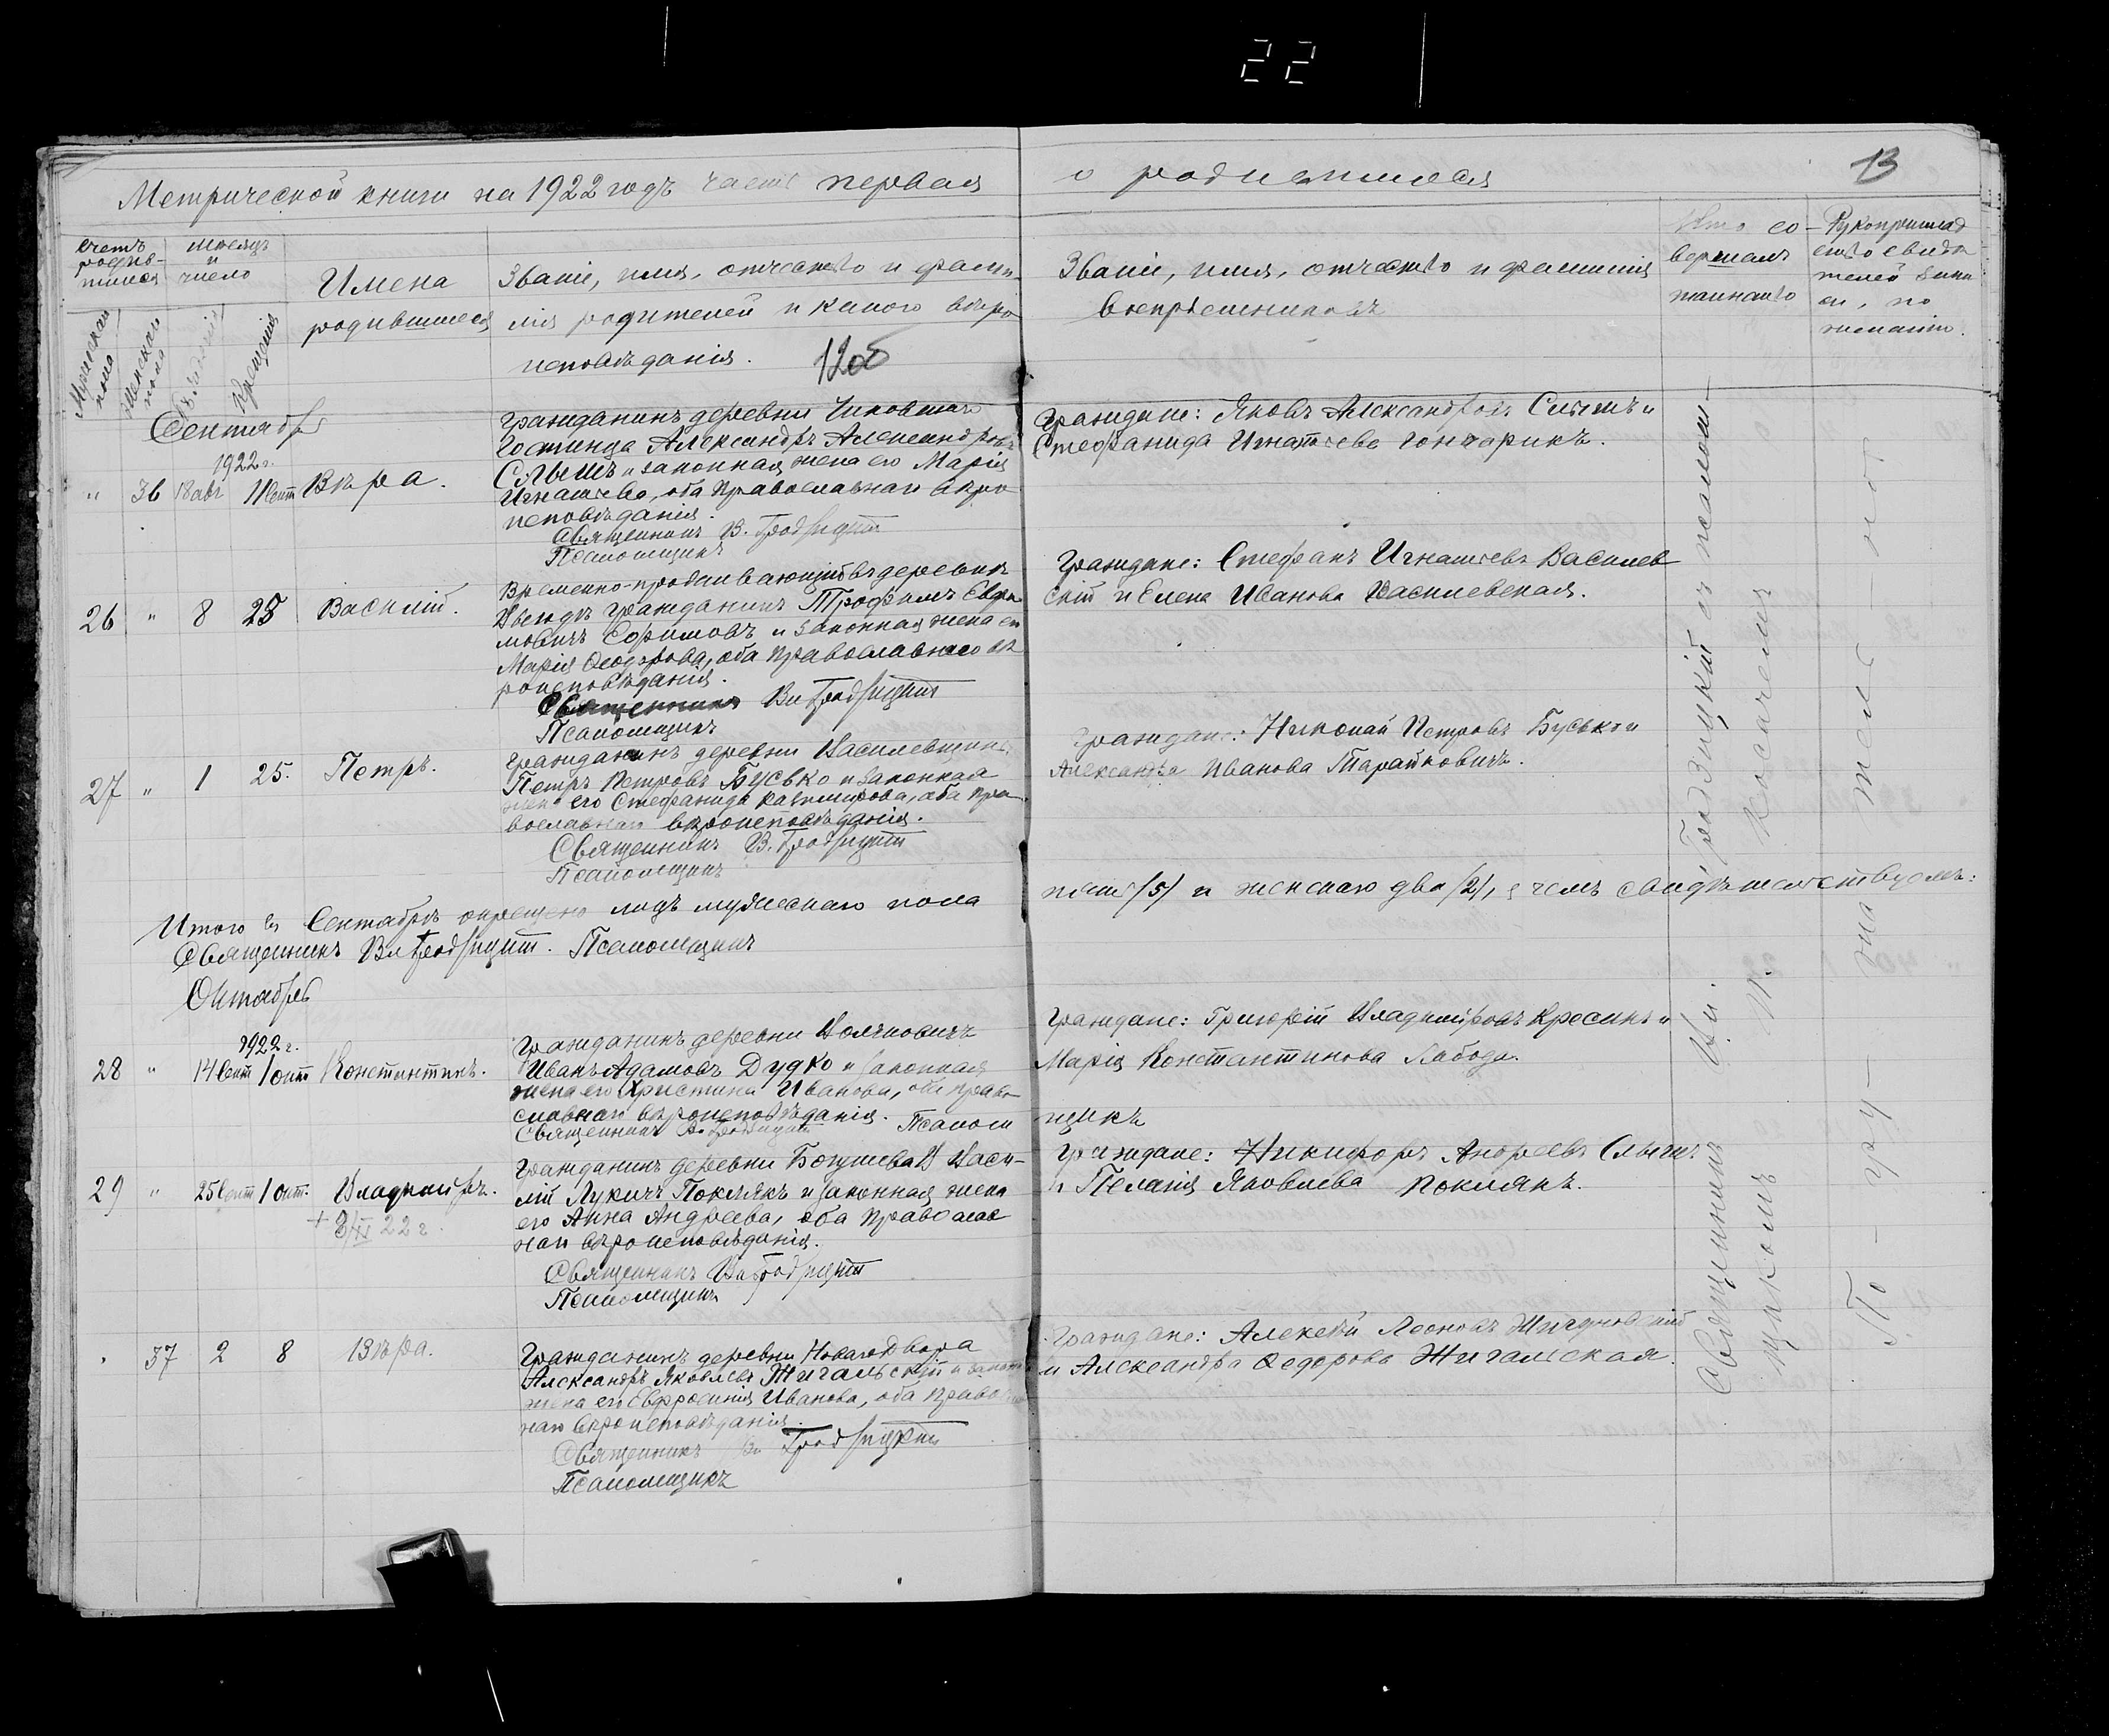 22
Метрической книги на 1922 годъ часть первая
о родившихся
13
Счетъ родив-шихся
Мѣсяцъ и число
Мужескаго пола
Женскаго пола
Рожденія
Крещенія
Имена
родившихся
Званіе, имя, отчество и фами-
лія родителей и какого вѣро
исповѣданія.
1200
Званіе, имя, отчество и фамилія
воспріемниковъ
Кто со-
вершалъ
таинство
Рукоприклад
ство свидѣ
телей записи
, по
желанію.
Сентябрь
1922 г.
" 36 18 авг 11 сент Вѣра.
Гражданинъ деревни
Гостинца Александръ Александровъ
Слышъ и законная жена его Марія
Игнатьева, оба православнаго вѣро
исповѣданія.
Священникъ В. Гродзицкій
Псаломщикъ
Граждане: Яковъ Александровъ Слышъ и
Стефанида Игнатьева Гончарикъ.
26 " 8 25 Василій.
Временно-проживающій въ деревнѣ
гражданинъ Трофимъ
Ефимовъ и законная жена его
Марія Ѳеодорова, оба православнаго вѣ
роисповѣданія.
Священникъ Вл Гродзицкій
Псаломщикъ
Граждане: Стефанъ Игнатьевъ Василев
скій и Елена Иванова Василевская.
27 " 1 25. Петръ.
Гражданинъ деревни Василевщины
Петръ Петровъ Бусько и законная
жена его Стефанида Казимирова, оба пра
вославнаго вѣроисповѣданія.
Священникъ В. Гродзицкій
Псаломщикъ
Граждане: Николай Петровъ Бусько и
Александра Иванова Тарайковичъ.
Итого въ Сентябрѣ окрещено лицъ мужескаго пола
пять /5/ и женскаго два /2/, о чемъ свидѣтельствуемъ:
Священникъ Вл Гродзицкій. Псаломщикъ
Октябрь
1922 г.
28 " 14 сент 1 окт Константинъ.
Гражданинъ деревни
Иванъ Адамовъ Дудко и законная
жена его Христина Иванова, оба право
славнаго вѣроисповѣданія.
Священникъ В. Гродзицкій Псалом
щикъ
Граждане: Григорій Владиміровъ Кресикъ и
Марія Константинова Лабода.
29 " 25 сент 1 окт. Владиміръ.
+ 8/XI 22 г.
Гражданинъ деревни Васи-
лій Лукичъ Поклякъ и законная жена
его Анна Андреева, оба православ
наго вѣроисповѣданія.
Священникъ Вл Гродзицкій
Псаломщикъ
Граждане: Никифоръ Андреевъ Слышъ
и Пелагія Яковлева Поклякъ.
37 2 8 Вѣра.
Гражданинъ деревни Новаго Двора
Александръ Яковлевъ Жигальскій и законная
жена его Евфросинія Иванова, оба православ
наго вѣроисповѣданія.
Священникъ Вл Гродзицкій
Псаломщикъ
Граждане: Алексѣй Леоновъ
и Александра Ѳедорова Жигальская.
Священникъ Вл. Гродзицкій съ псалом-
щикомъ И. Косачемъ